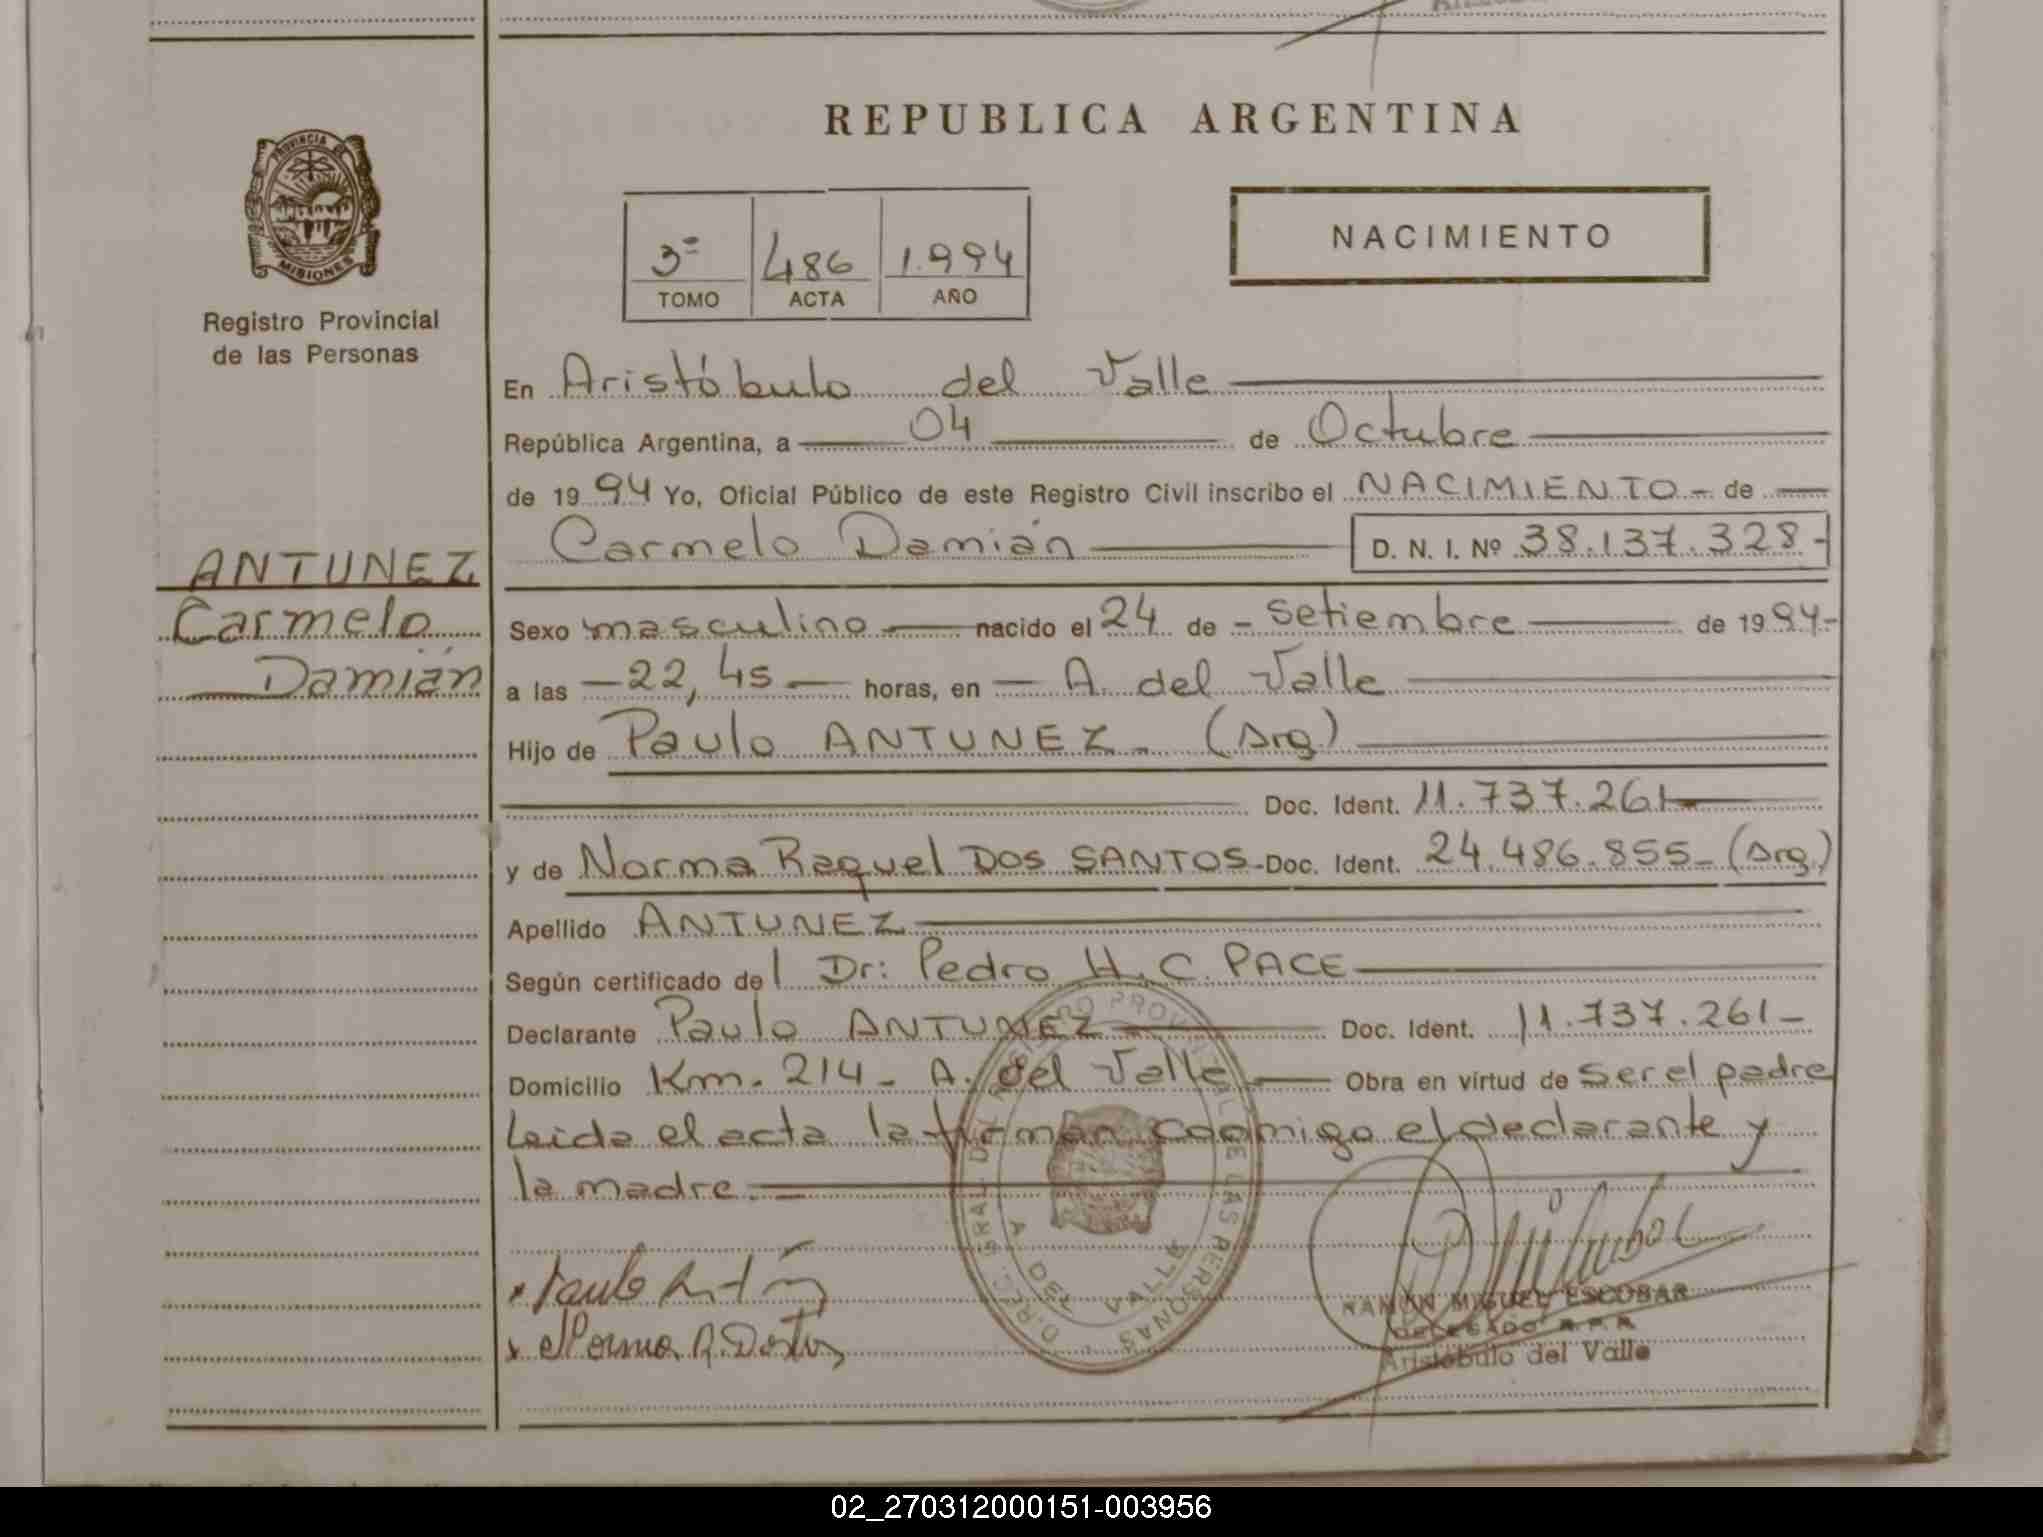 REPUBLICA ARGENTINA
PROVINCIA DE
MISIONES
Registro Provincial
de las Personas
3º 486 1.994
TOMO ACTA AÑO
NACIMIENTO
En Aristóbulo del Valle
República Argentina, a 04 de Octubre
de 1994 Yo, Oficial Público de este Registro Civil inscribo el NACIMIENTO - de
Carmelo Damián D. N. I. Nº 38.137.328-
ANTUNEZ
Carmelo
Damián
Sexo masculino nacido el 24 de - Setiembre de 1994-
a las 22,45 horas, en A. del Valle
Hijo de Paulo ANTUNEZ - (Arg.)
Doc. Ident. 11.737.261
y de Norma Raquel DOS SANTOS - Doc. Ident. 24.486.855- (Arg.)
Apellido ANTUNEZ
Según certificado del Dr: Pedro H. C. PACE
Declarante Paulo ANTUNEZ Doc. Ident. 11.737.261-
Domicilio Km. 214 - A. del Valle Obra en virtud de Ser el padre
Leida el acta la firman conmigo el declarante y
la madre.
RAMÓN MIGUEL ESCOBAR
DELEGADO R.P.P.
Aristóbulo del Valle
02_270312000151-003956